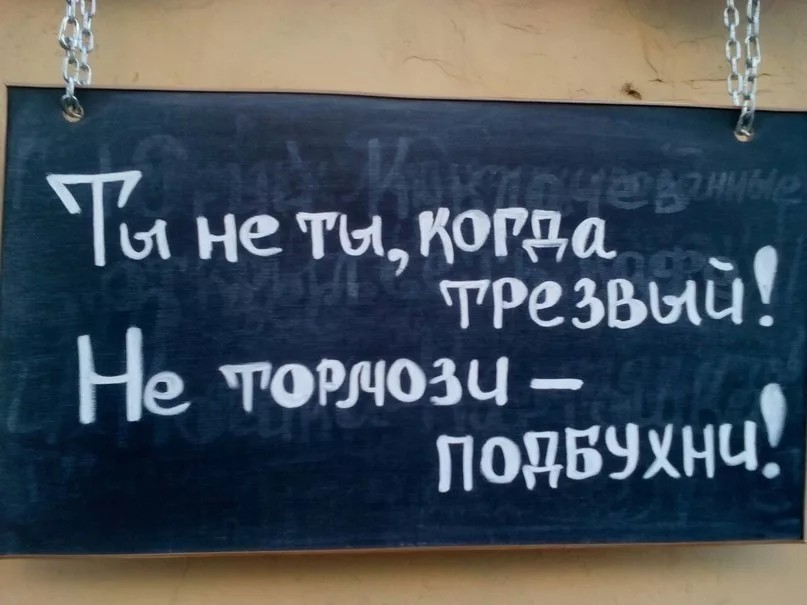 Ты не ты, когда
трезвый!
Не тормози –
подбухни!